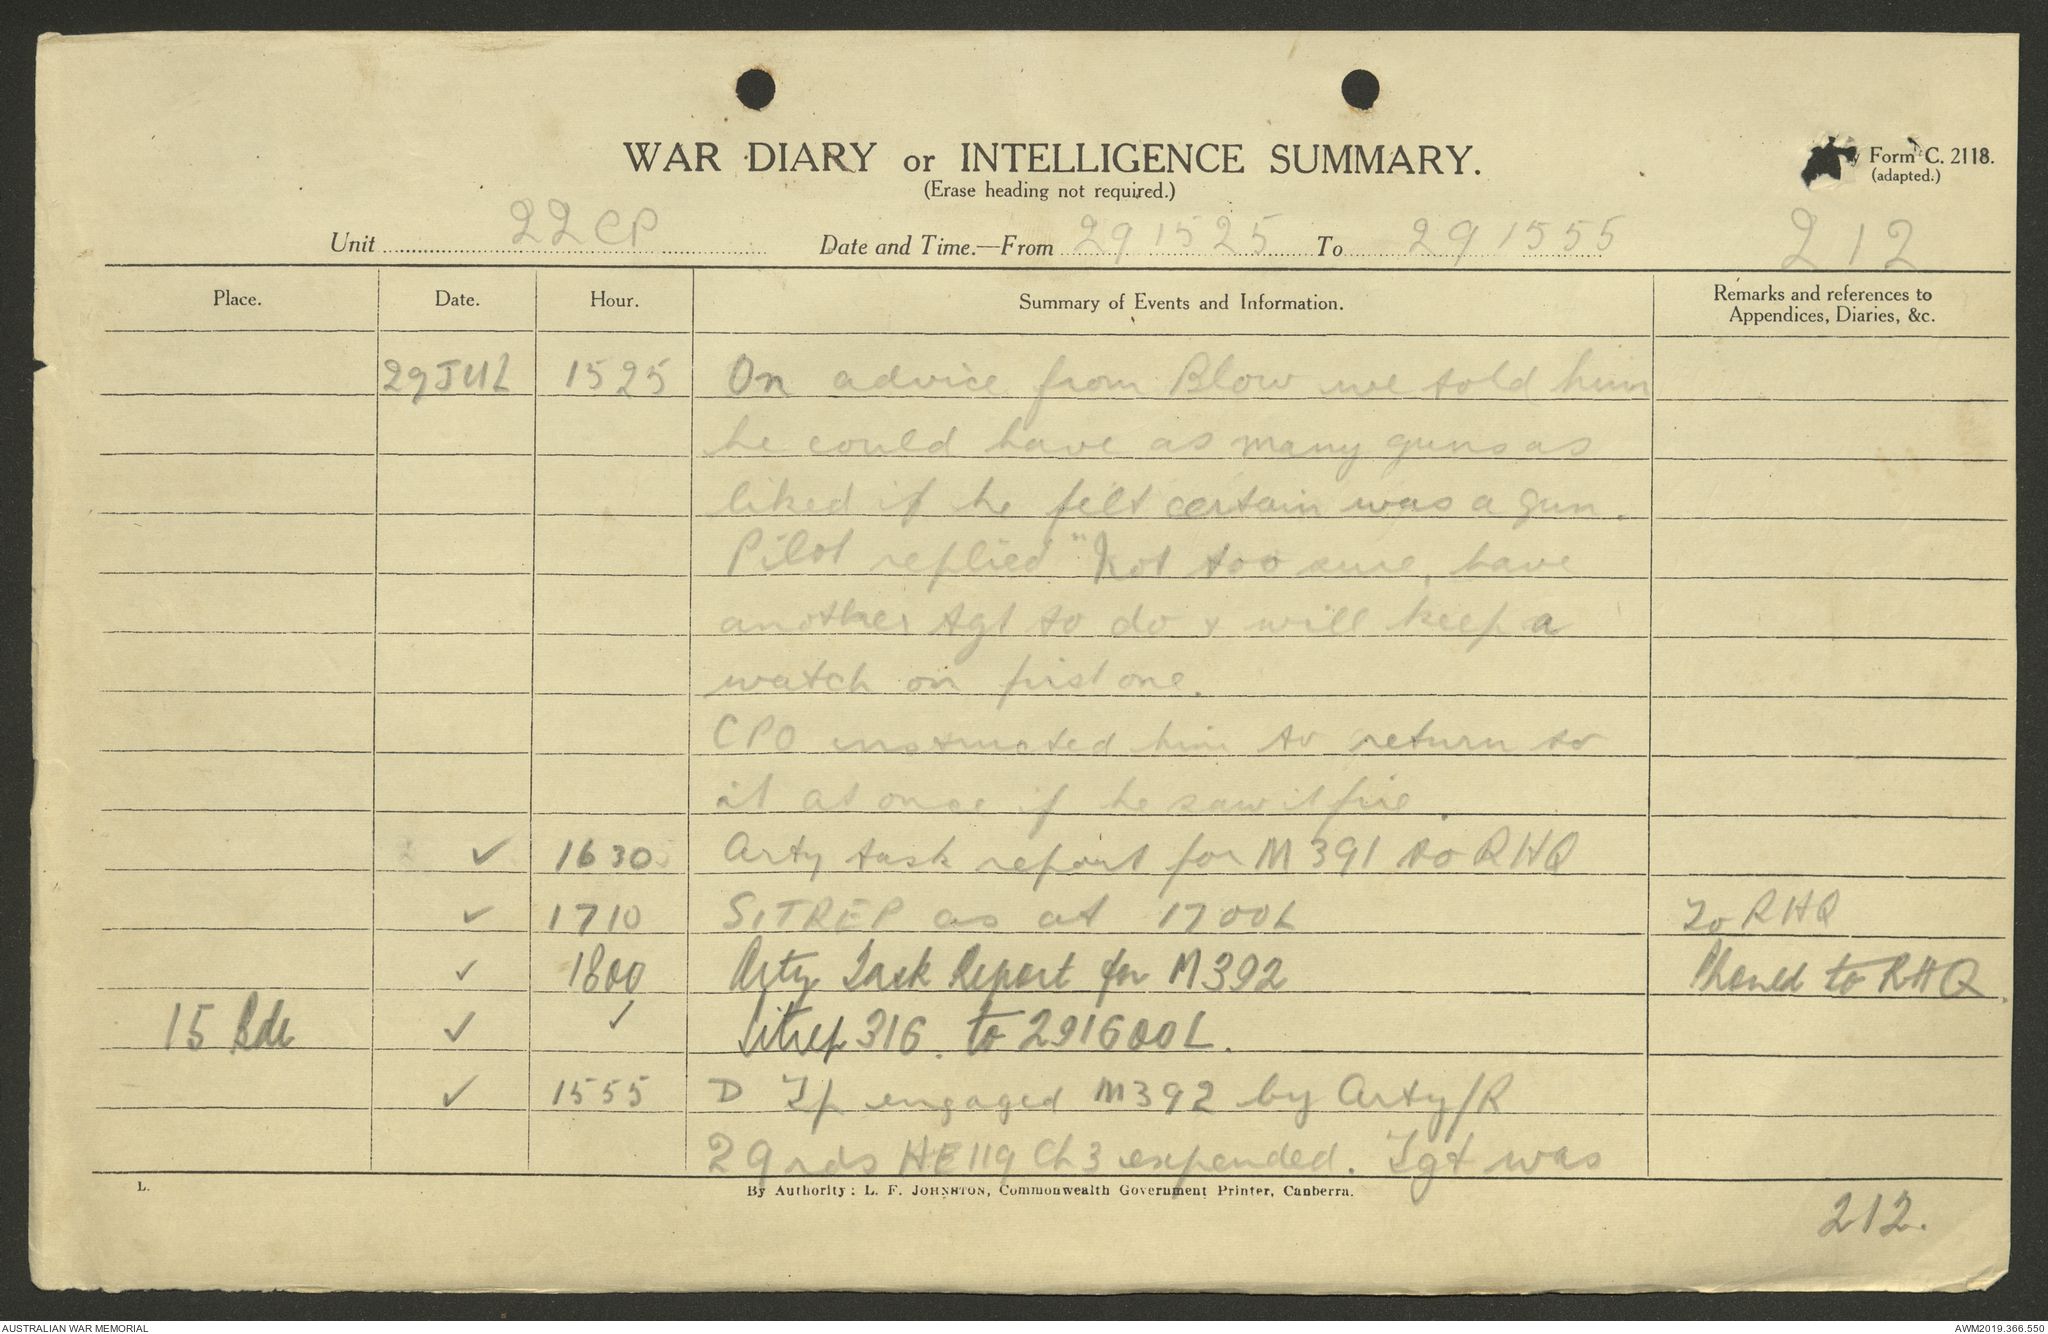 WAR DIARY or INTELLIGENCE SUMMARY.
(Erase heading not required.)
Form C. 2118.
(adapted.)
Unit 22 CP Date and Time.—From 291525 To 291555
212
Place. Date. Hour. Summary of Events and Information. Remarks and references to Appendices, Diaries, &c.
29 JUL 1525 On advice from Blow we told him
he could have as many guns as
liked if he felt certain was a gun.
Pilot replied "Not too sure, have
another tgt to do & will keep a
watch on first one.
CPO instructed him to return to
it at once if he saw it fire.
✓ 1630 Arty task report for M 391 to RHQ
✓ 1710 SITREP as at 1700L To RHQ
✓ 1800 Arty Task Report for M392 Phoned to RHQ.
15 Bde ✓ ✓ Sitrep 316. to 291600L.
✓ 1555 D Tp engaged M392 by Arty/R
29 rds HE 119 Ch 3 expended. Tgt was
L.
By Authority: L. F. JOHNSTON, Commonwealth Government Printer, Canberra.
212.
AUSTRALIAN WAR MEMORIAL
AWM2019.366.550